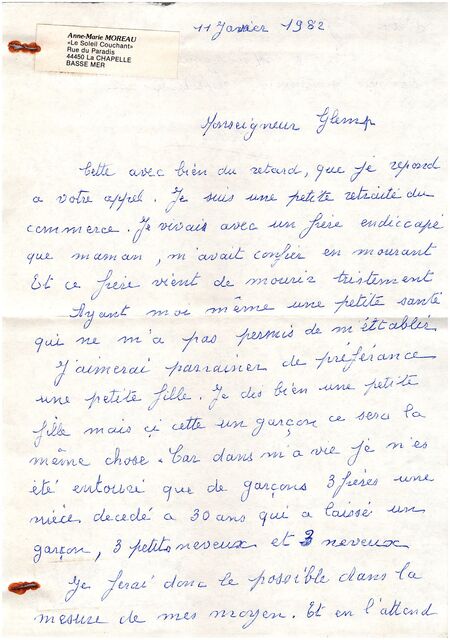 Anne-Marie MOREAU
«Le Soleil Couchant»
Rue du Paradis
44450 La CHAPELLE
BASSE MER
11 Janvier 1982
Monseigneur Glemp
Cette avec bien du retard, que je repond
a votre appel. Je suis une petite retraité du
commerce. Je vivais avec un frère endiccapé
que maman, m'avait confier en mourant
Et ce frère vient de mourir tristement
Ayant moi même une petite santé
qui ne m'a pas permis de m'ettabler
J'aimerai parrainer de préférance
une petite fille. Je dis bien une petite
fille mais ci cette un garçon ce sera la
même chose. Car dans m'a vie je n'es
été entouré que de garçons 3 frères une
nièce decedé a 30 ans qui a laissé un
garçon, 3 petits neveux et 3 neveux
Je ferai donc le possible dans la
mesure de mes moyen. Et en l'attend